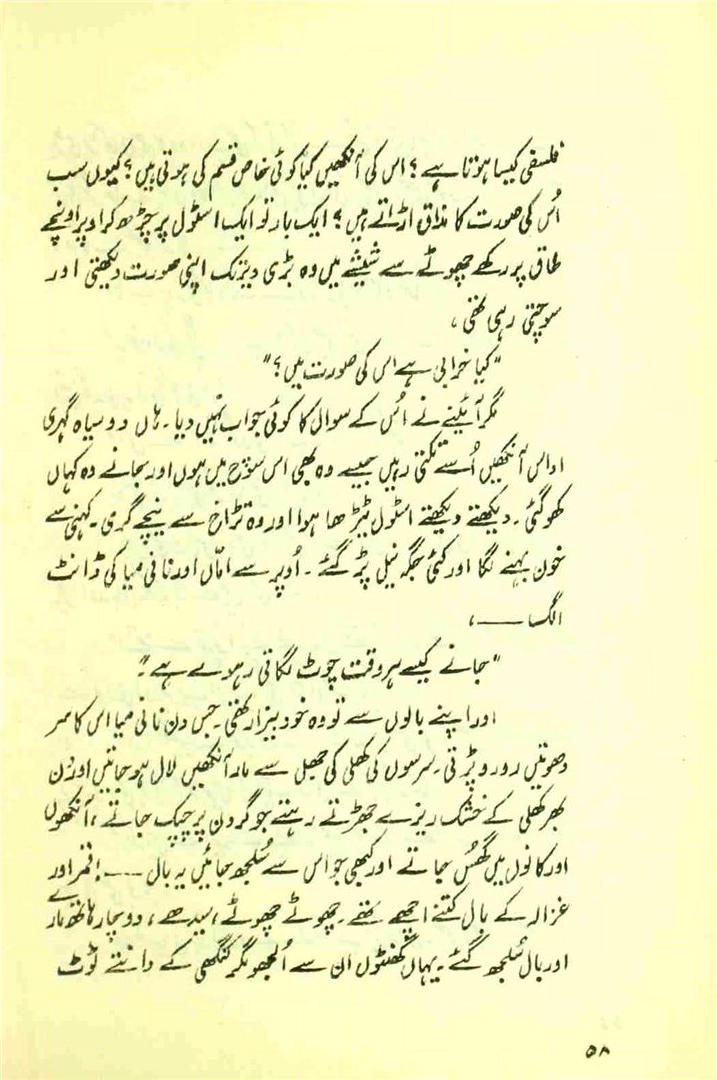 فلسفی کیسا ہوتا ہے ؟ اس کی آنکھیں کیا کوئی خاص قسم کی ہوتی ہیں ؟ کیوں سب
اُس کی صورت کا مذاق اڑاتے ہیں ؟ ایک بار تو ایک اسٹول پر چڑھ کر اوپر اونچے
طاق پر رکھے چھوٹے سے شیشے میں وہ بڑی دیر تک اپنی صورت دیکھتی اور
سوچتی رہی تھی ،
"کیا خرابی ہے اس کی صورت میں ؟"
مگر آئینے نے اُس کے سوال کا کوئی جواب نہیں دیا ۔ ہاں دو سیاہ گہری
اداس آنکھیں اُسے تکتی رہیں جیسے وہ بھی اس سوچ میں ہوں اور جانے وہ کہاں
کھو گئی ۔ دیکھتے دیکھتے اسٹول ٹیڑھا ہوا اور وہ تڑاخ سے نیچے گری ۔ کہنی سے
خون بہنے لگا اور کئی جگہ نیل پڑ گئے ۔ اُوپر سے امّاں اور نانی میا کی ڈانٹ
الگ ــــ ،
"جانے کیسے ہر وقت چوٹ لگاتی رہوے ہے ۔"
اور اپنے بالوں سے تو وہ خود بیزار تھی ۔ جس دن نانی میا اس کا سر
دھوتیں رو رو پڑتی ۔ سرسوں کی کھلی کی جھل سے مارے آنکھیں لال ہو جاتیں اور دن
بھر کھلی کے خشک ریزے جھڑتے رہتے جو گردن پر چپک جاتے ، آنکھوں
اور کانوں میں گھُس جاتے اور کبھی جو اس سے سُلجھ جائیں یہ بال ــــ ! قمر اور
غزالہ کے بال کتنے اچھے تھے ۔ چھوٹے چھوٹے ، سیدھے ، دو چار ہاتھ مارے
اور بال سُلجھ گئے ۔ یہاں گھنٹوں ان سے اُلجھو مگر کنگھی کے دانتے ٹوٹ
۵۸